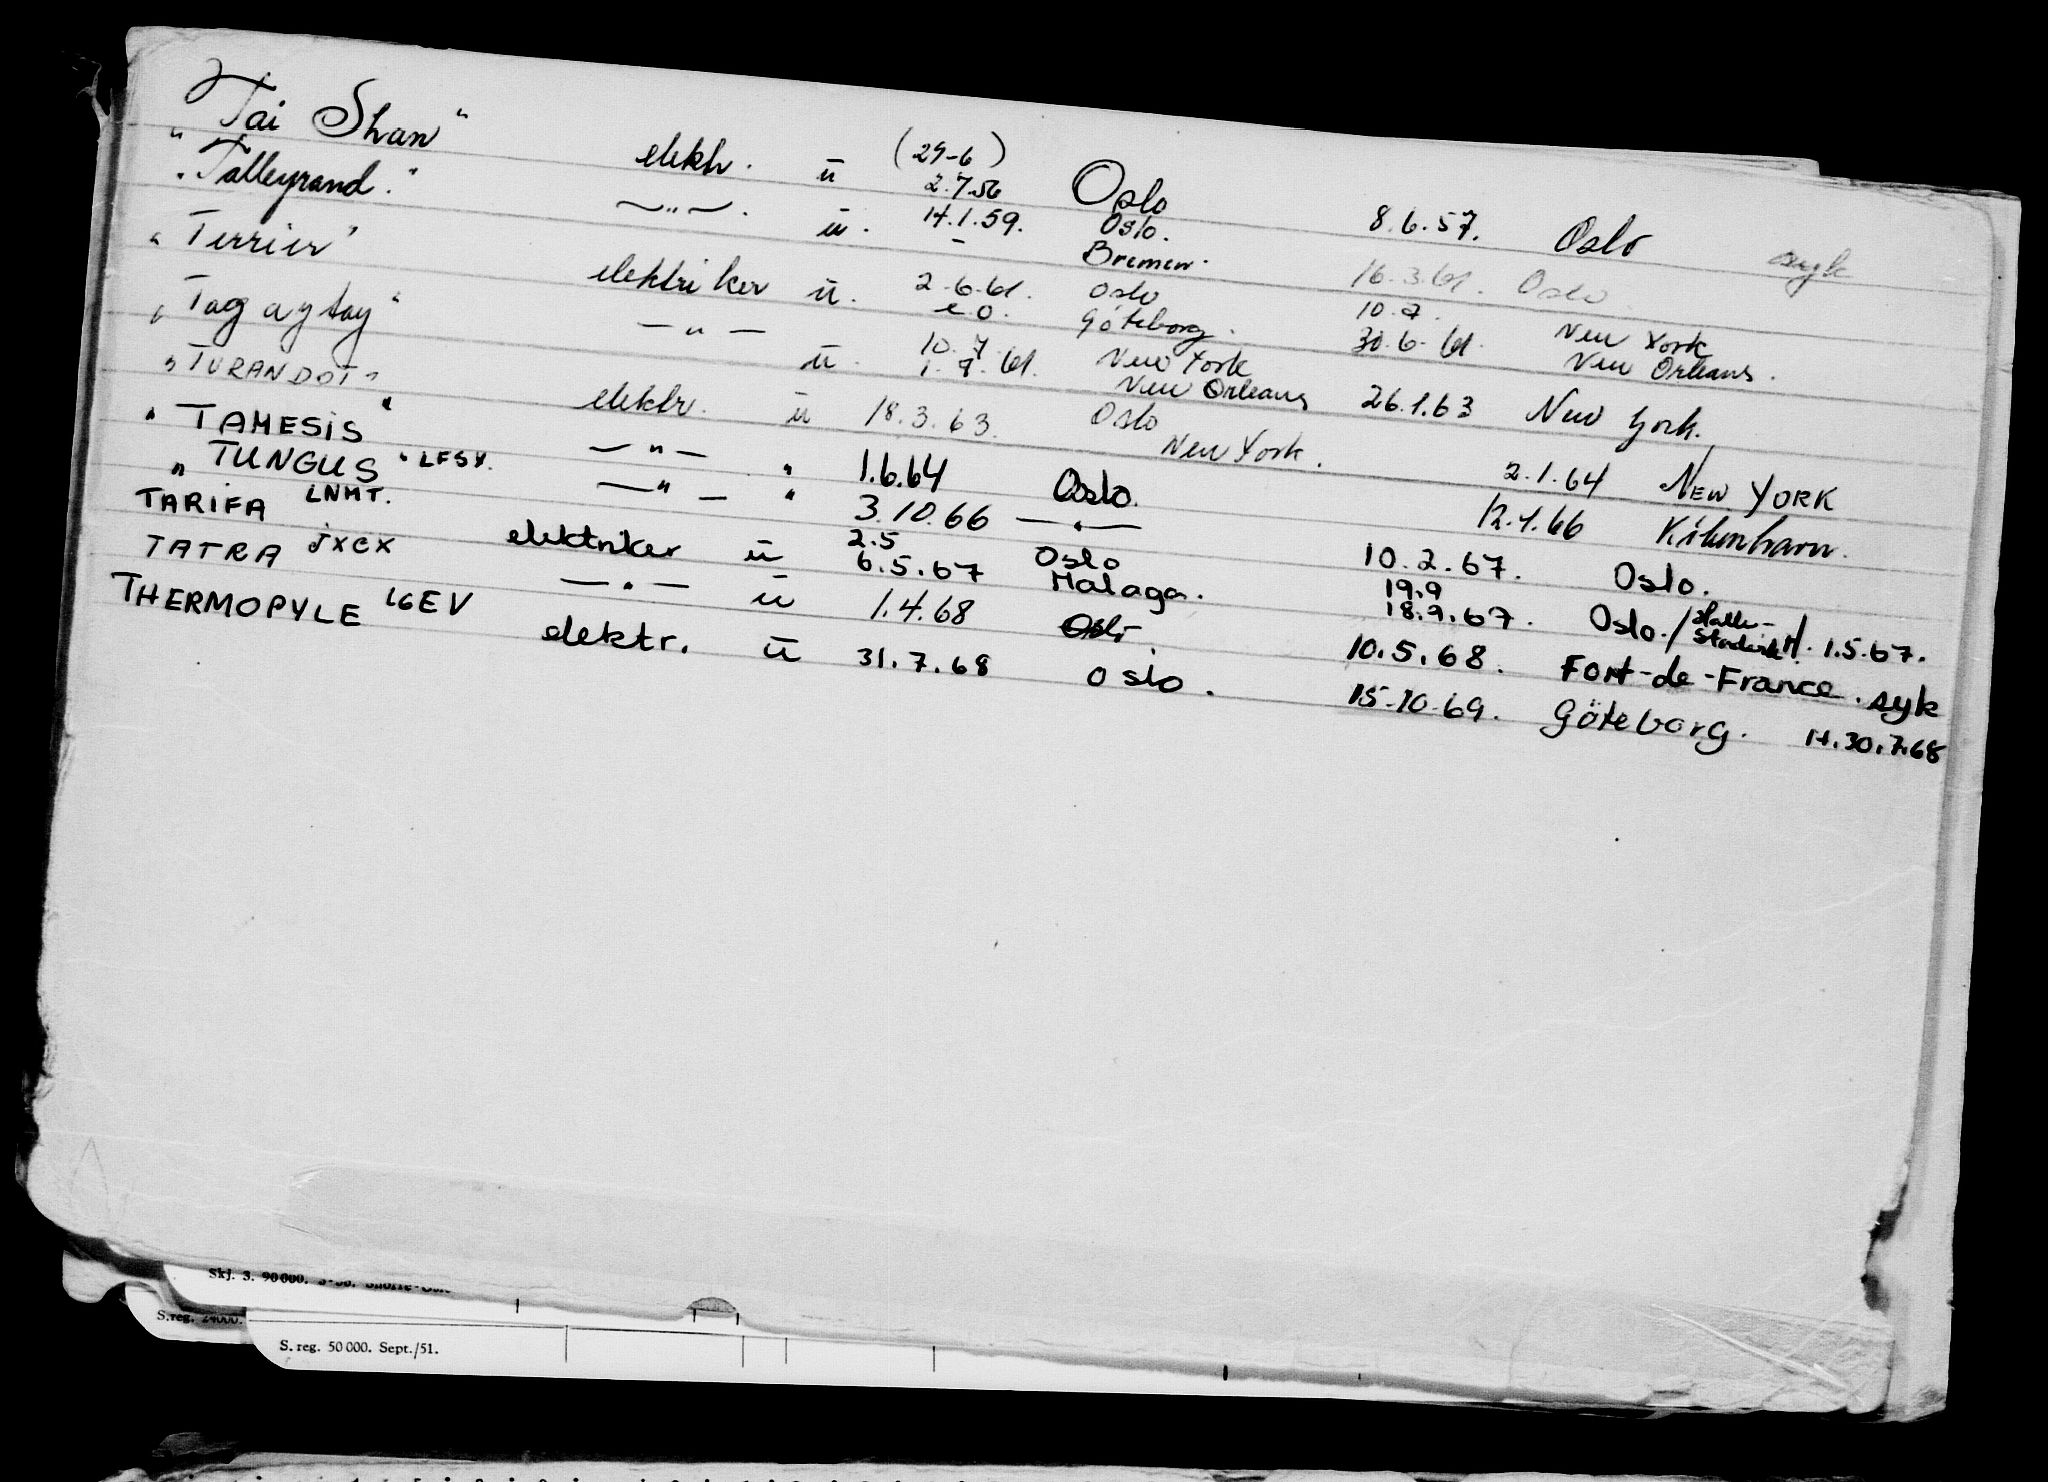 "Tai Shan" elektr. ü (29-6) 2.7.56 Oslo 8.6.57. Oslo syk
"Talleyrand." —"—. ü. 14.1.59. Oslo. Bremen. 16.3.61. Oslo.
"Terrier" elektriker ü. 2.6.61. Oslo Göteborg. 10.7. 30.6.61. New York New Orleans.
"Tagaytay" —"— ü. 10.7 1.7.61. New York New Orleans 26.1.63 New York.
"TURANDOT" elektr. ü 18.3.63. Oslo New York. 2.1.64 NEW YORK
"TAMESIS" —"— " 1.6.64 Oslo. 12.1.66 København.
"TUNGUS" LFSY. —"— " 3.10.66 —"— 10.2.67. Oslo.
TARIFA LNMT. elektriker ü 2.5 6.5.67 Oslo Malaga. 19.9 18.9.67. Oslo. 1.5.67.
TATRA JXCX —"— ü 1.4.68 Oslo 10.5.68. Fort-de-France. syk
THERMOPYLE LGEV elektr. ü 31.7.68 Oslo. 15.10.69. Göteborg. H.30.7.68
Skj. 3. 90000.
S.reg. 24000.
S. reg. 50 000. Sept./51.